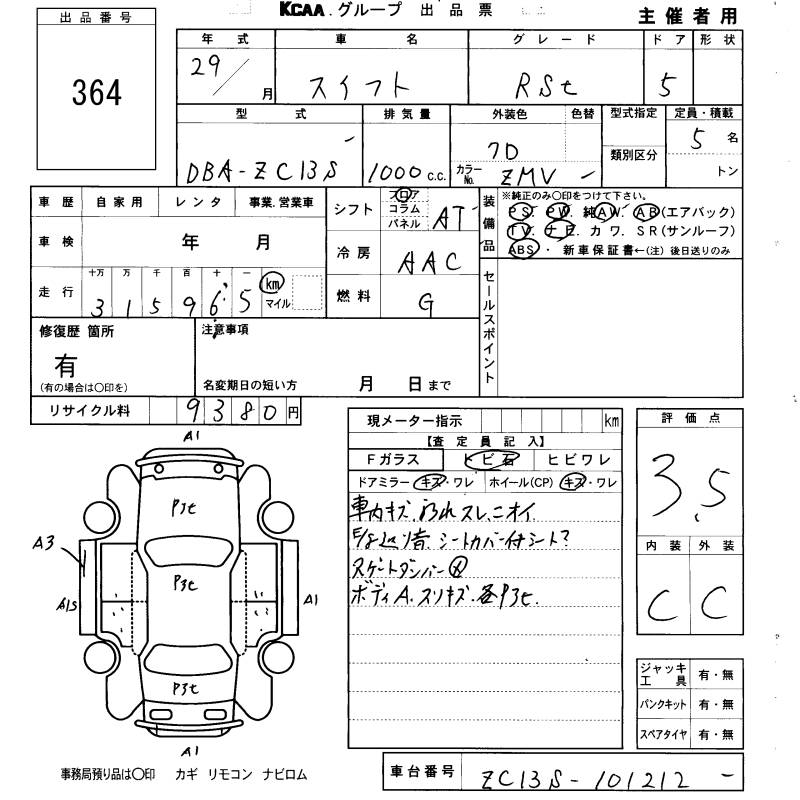 KCAA.グループ 出品票
主催者用
出品番号
364
年式 車名 グレード ドア 形状
29/ 月 スイフト RSt 5
型式 排気量 外装色 色替 型式指定 定員・積載
DBA-ZC13S 1000 c.c. 7D カラーNo. ZMV 類別区分 5 名
トン
車歴 自家用 レンタ 事業.営業車
車検 年 月
走行 十万 万 千 百 十 一 km マイル
3 1 5 9 6 5
シフト フロア コラム パネル AT
冷房 AAC
燃料 G
装備品
※純正のみ○印をつけて下さい。
PS. PW. 純AW. AB(エアバック)
TV. ナビ. カワ. SR(サンルーフ)
ABS・ 新車保証書←(注) 後日送りのみ
セールスポイント
修復歴 箇所
有
(有の場合は○印を)
注意事項
名変期日の短い方 月 日まで
リサイクル料 9380円
現メーター指示 km
【査定員記入】
Fガラス トビ石 ヒビワレ
ドアミラー キズ・ワレ ホイール(CP) キズ・ワレ
車内キズ.汚れスレ、ニオイ.
シートカバー付シート?
ボディA.スリキズ.各P3t.
評価点
3.5
内装 外装
C C
A1
P3t
A3
P3t
A1S
A1
P3t
A1
ジャッキ工具 有・無
パンクキット 有・無
スペアタイヤ 有・無
事務局預り品は○印 カギ リモコン ナビロム
車台番号 ZC13S-101212